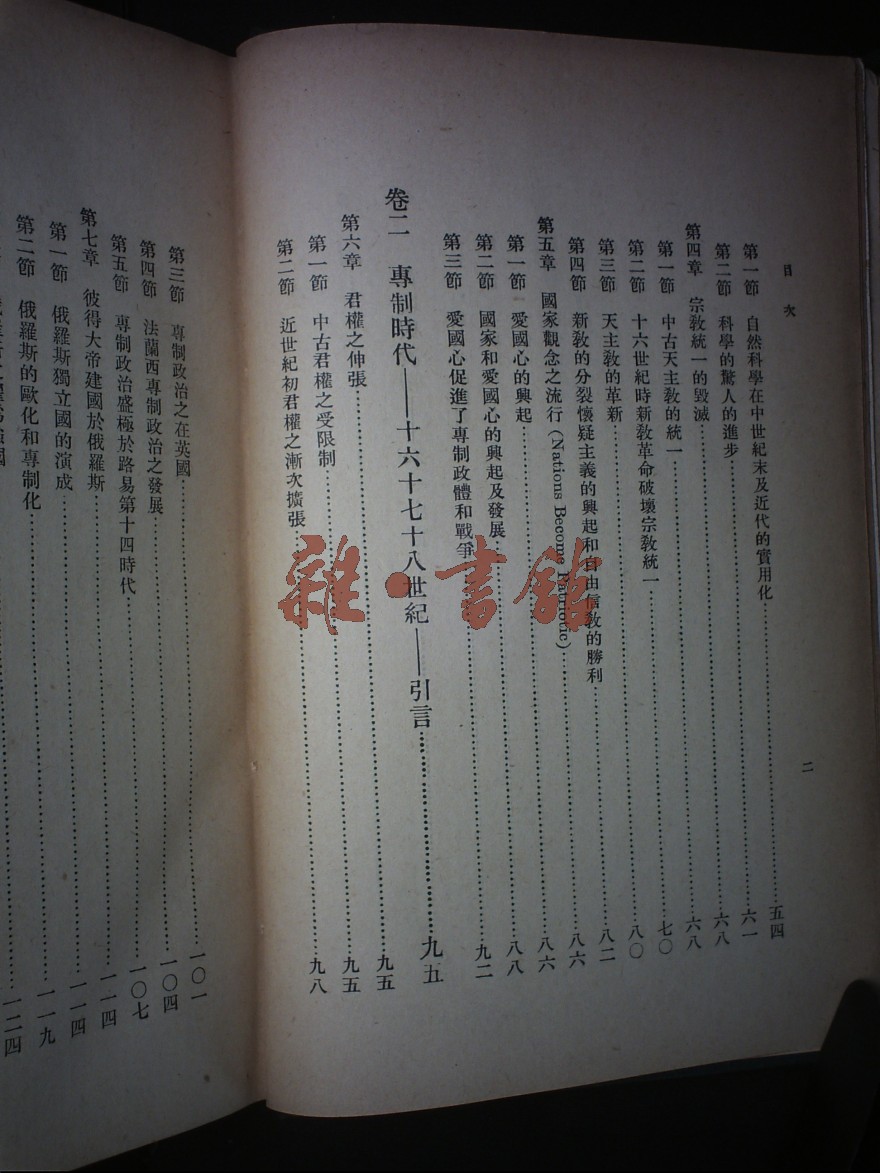 目次
第一節 自然科學在中世紀末及近代的實用化……五四
第二節 科學的驚人的進步……六一
第四章 宗教統一的毀滅……六八
第一節 中古天主教的統一……六八
第二節 十六世紀時新教革命破壞宗教統一……七〇
第三節 天主教的革新……八〇
第四節 新教的分裂懷疑主義的興起和自由信教的勝利……八二
第五章 國家觀念之流行 (Nations Become Patriotic)……八六
第一節 愛國心的興起……八六
第二節 國家和愛國心的興起及發展……八八
第三節 愛國心促進了專制政體和戰爭……九二
卷二 專制時代——十六十七十八世紀——引言……九五
第六章 君權之伸張……九五
第一節 中古君權之受限制……九五
第二節 近世紀初君權之漸次擴張……九八
二
第三節 專制政治之在英國……一〇一
第四節 法蘭西專制政治之發展……一〇四
第五節 專制政治盛極於路易第十四時代……一〇七
第七章 彼得大帝建國於俄羅斯……一一四
第一節 俄羅斯獨立國的演成……一一四
第二節 俄羅斯的歐化和專制化……一一九
一二四
雜·書館